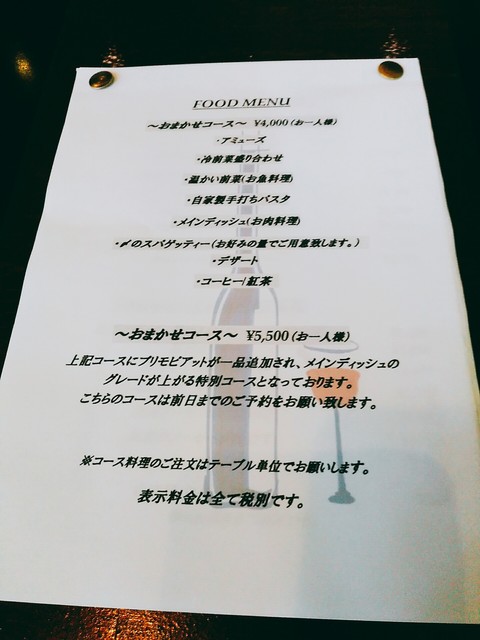 FOOD MENU
～おまかせコース～ ¥4,000（お一人様）
・アミューズ
・冷前菜盛り合わせ
・温かい前菜(お魚料理)
・自家製手打ちパスタ
・メインディッシュ(お肉料理)
・〆のスパゲッティー(お好みの量でご用意致します。)
・デザート
・コーヒー/紅茶
～おまかせコース～ ¥5,500（お一人様）
上記コースにプリモピアットが一品追加され、メインディッシュの
グレードが上がる特別コースとなっております。
こちらのコースは前日までのご予約をお願い致します。
※コース料理のご注文はテーブル単位でお願いします。
表示料金は全て税別です。